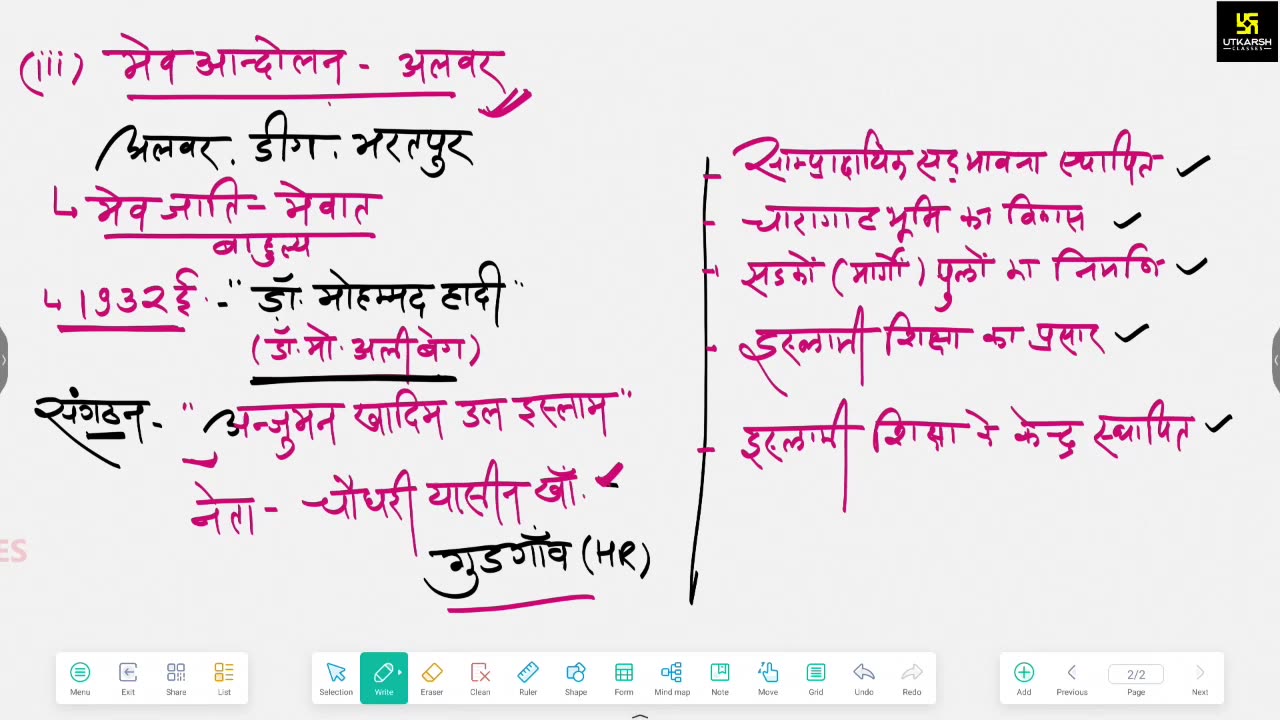 (iii) मेव आन्दोलन - अलवर
अलवर, डीग, भरतपुर
↳ मेव जाति - मेवात
बाहुल्य
↳ 1932ई. - "डॉ. मोहम्मद हादी"
(डॉ. मो. अली बेग)
संगठन - "अन्जुमन खादिम उल इस्लाम"
नेता - चौधरी यासीन खाँ.
गुडगाँव (HR)
- साम्प्रादायिक सद्भावना स्थापित ✓
- चारागाह भूमि का विकास ✓
- सडकों (मार्गों) पुलों का निर्माण ✓
- इस्लामी शिक्षा का प्रसार ✓
- इस्लामी शिक्षा के केन्द्र स्थापित ✓
UTKARSH
CLASSES
ES
Menu Exit Share List
Selection Write Eraser Clean Ruler Shape Form Mind map Note Move Grid Undo Redo
Add Previous 2/2 Page Next